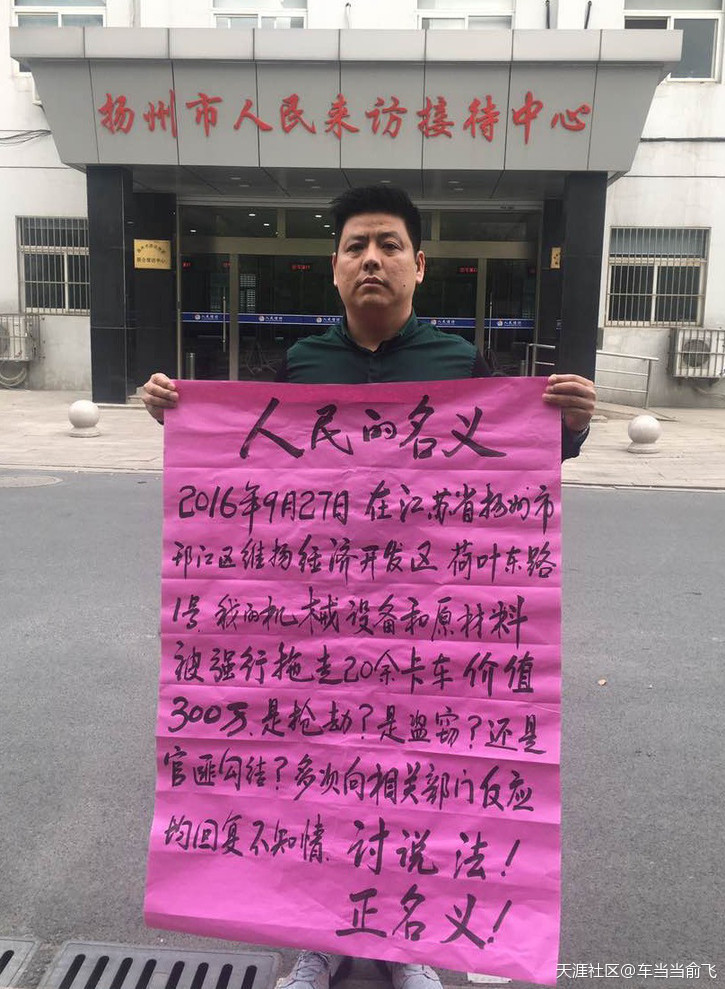 扬州市人民来访接待中心
人民来访
人民的名义
2016年9月27日 在江苏省扬州市
邗江区维扬经济开发区 荷叶东路
1号.我的机械设备和原材料
被强行拖走20余卡车 价值
300万.是抢劫?是盗窃?还是
官匪勾结?多次向相关部门反应
均回复不知情. 讨说法!
正名义!
天涯社区@车当当俞飞